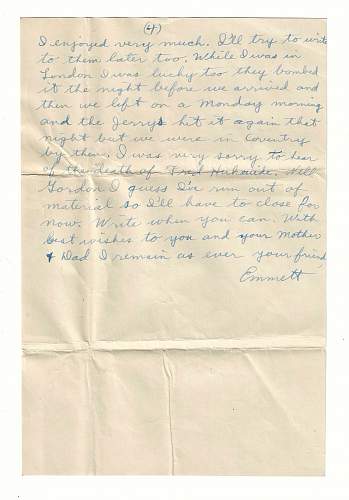 (4)
I enjoyed very much. I'll try to write
to them later too. While I was in
London I was lucky too they bombed
it the night before we arrived and
then we left on a Monday morning
and the Jerrys hit it again that
night but we were in Coventry
by then. I was very sorry to hear
of the death of Fred. Well
Gordon I guess I've run out of
material so I'll have to close for
now. Write when you can. With
best wishes to you and your Mother
& Dad I remain as ever your friend
Emmett